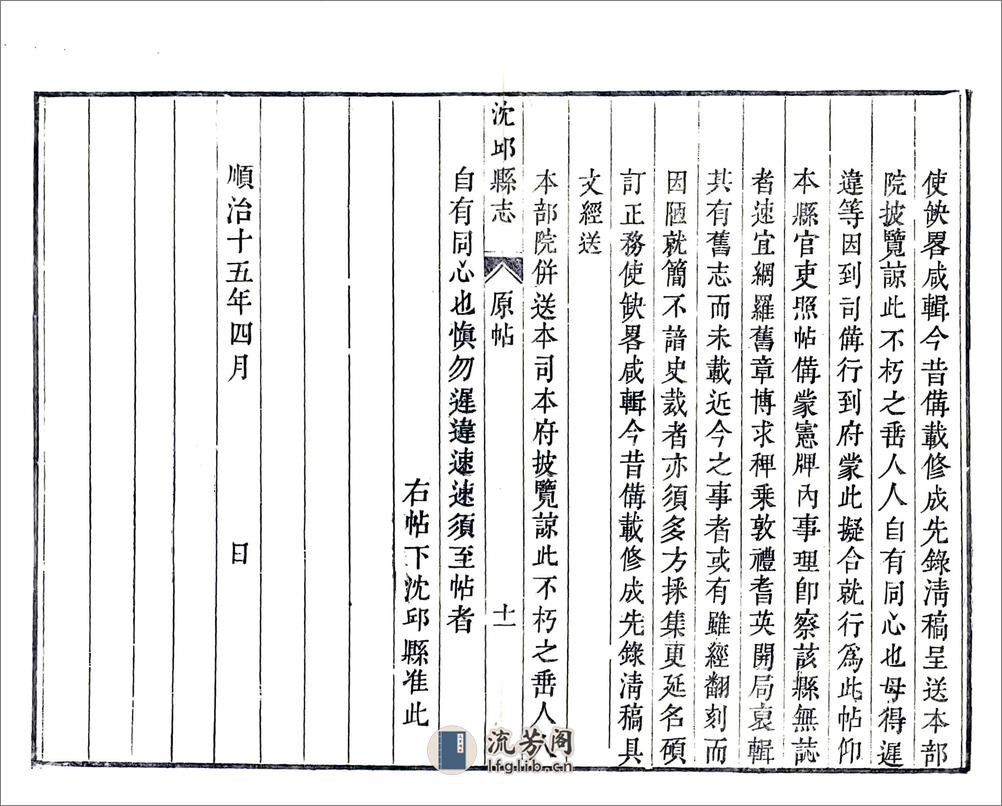 使缺畧咸輯今昔備載修成先錄淸稿呈送本部
院披覽諒此不朽之垂人人自有同心也毋得遲
違等因到司備行到府蒙此擬合就行爲此帖仰
本縣官吏照帖備蒙憲牌內事理卽察該縣無誌
者速宜網羅舊章博求稗乘敦禮耆英開局裒輯
其有舊志而未載近今之事者或有雖經翻刻而
因陋就簡不諳史裁者亦須多方採集更延名碩
訂正務使缺畧咸輯今昔備載修成先錄淸稿具
文經送
本部院併送本司本府披覽諒此不朽之垂人人
沈邱縣志 原帖 十一
自有同心也慎勿遲違速速須至帖者
右帖下沈邱縣准此
順治十五年四月 日
流芳阁
lfglib.cn